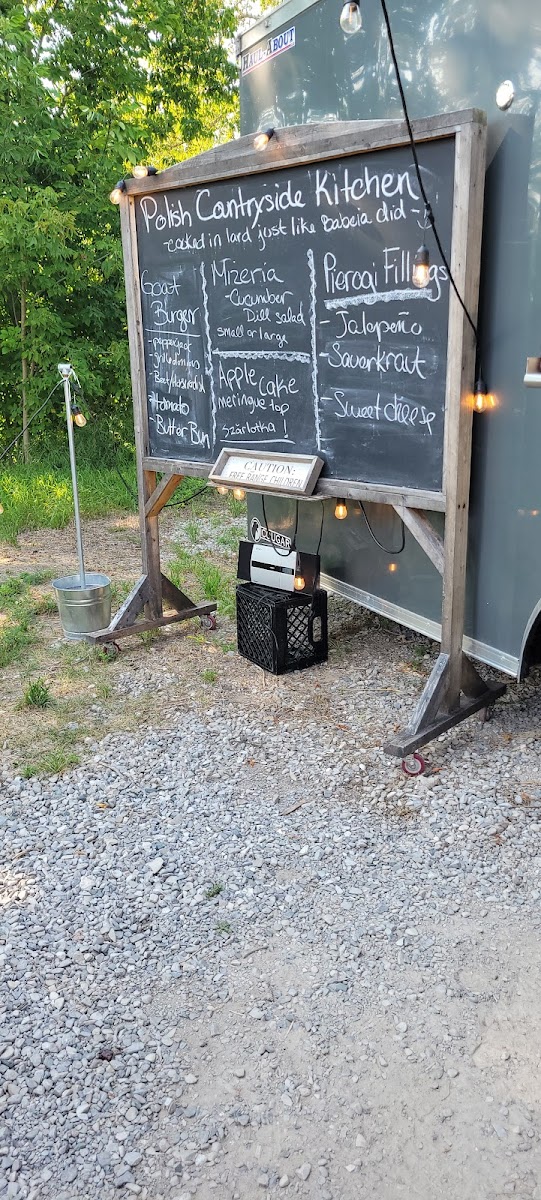 HAUL-ABOUT
Polish Countryside Kitchen
-cooked in lard just like Babcia did-
Goat
Burger
- pepperjack
- grilled onions
- Beet/Horseradish
- tomato
- Butter Bun
Mizeria
- Cucumber
Dill salad
small or large
Apple cake
meringue top
szarlotka!
Pierogi Fillings
- Jalapeño
- Sauerkraut
- Sweet cheese
CAUTION:
FREE RANGE CHILDREN
COUGAR